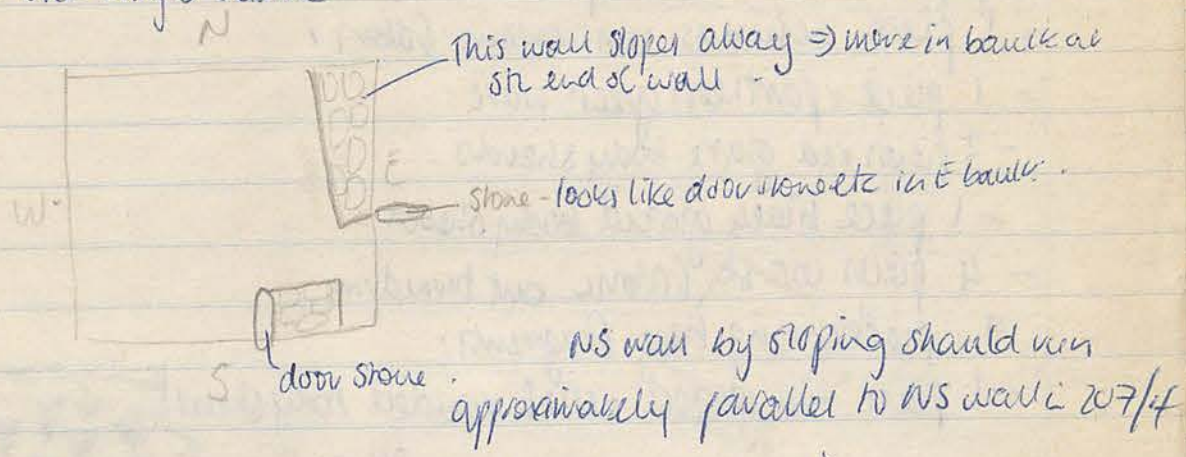 N
This wall slopes away => more in baulk at
sth end of wall -
E
stone - looks like door stone etc in E baulk.
W.
NS wall by sloping should run
S
door stone.
approximately parallel to NS wall in 207/4